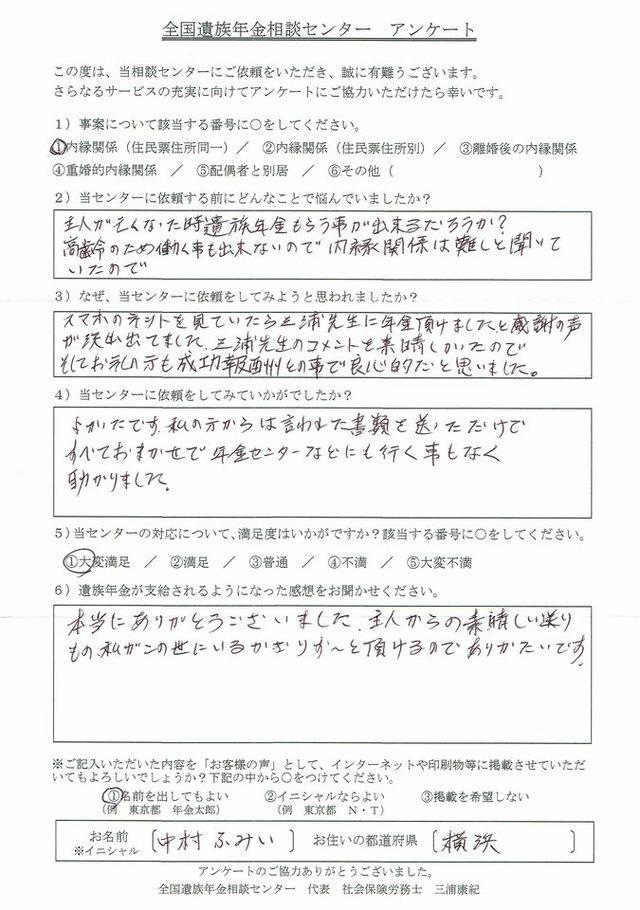 全国遺族年金相談センター　アンケート
この度は、当相談センターにご依頼をいただき、誠に有難うございます。
さらなるサービスの充実に向けてアンケートにご協力いただけたら幸いです。
1）事案について該当する番号に○をしてください。
①内縁関係（住民票住所同一）／　②内縁関係（住民票住所別）／　③離婚後の内縁関係
④重婚的内縁関係　／　⑤配偶者と別居　／　⑥その他（　　　　　　　　）
2）当センターに依頼する前にどんなことで悩んでいましたか？
主人が亡くなった時遺族年金もらう事が出来るだろうか？
高齢令のため働く事も出来ないので内縁関係は難しと聞いて
いたので
3）なぜ、当センターに依頼をしてみようと思われましたか？
スマホのネットを見ていたら三浦先生に年金頂けましたと感謝の声
が沢山出てました、三浦先生のコメントも素晴しかたので
そしてお礼の方も成功報酬との事で良心的だと思いました。
4）当センターに依頼をしてみていかがでしたか？
よかったです、私の方からは言われた書類を送っただけで
すべておまかせで年金センターなどにも行く事もなく
助かりました。
5）当センターの対応について、満足度はいかがですか？該当する番号に○をしてください。
①大変満足　／　②満足　／　③普通　／　④不満　／　⑤大変不満
6）遺族年金が支給されるようになった感想をお聞かせください。
本当にありがとうございました、主人からの素晴しい送り
もの、私がこの世にいるかぎりず〜と頂けるのでありがたいです。
※ご記入いただいた内容を「お客様の声」として、インターネットや印刷物等に掲載させていただ
いてもよろしいでしょうか？下記の中から○をつけてください。
①名前を出してもよい　　②イニシャルならよい　　③掲載を希望しない
（例　東京都　年金太郎）　　（例　東京都　N・T）
お名前　〔中村ふみい〕　お住いの都道府県　〔横浜　　　〕
※イニシャル
アンケートのご協力ありがとうございました。
全国遺族年金相談センター　代表　社会保険労務士　三浦康紀